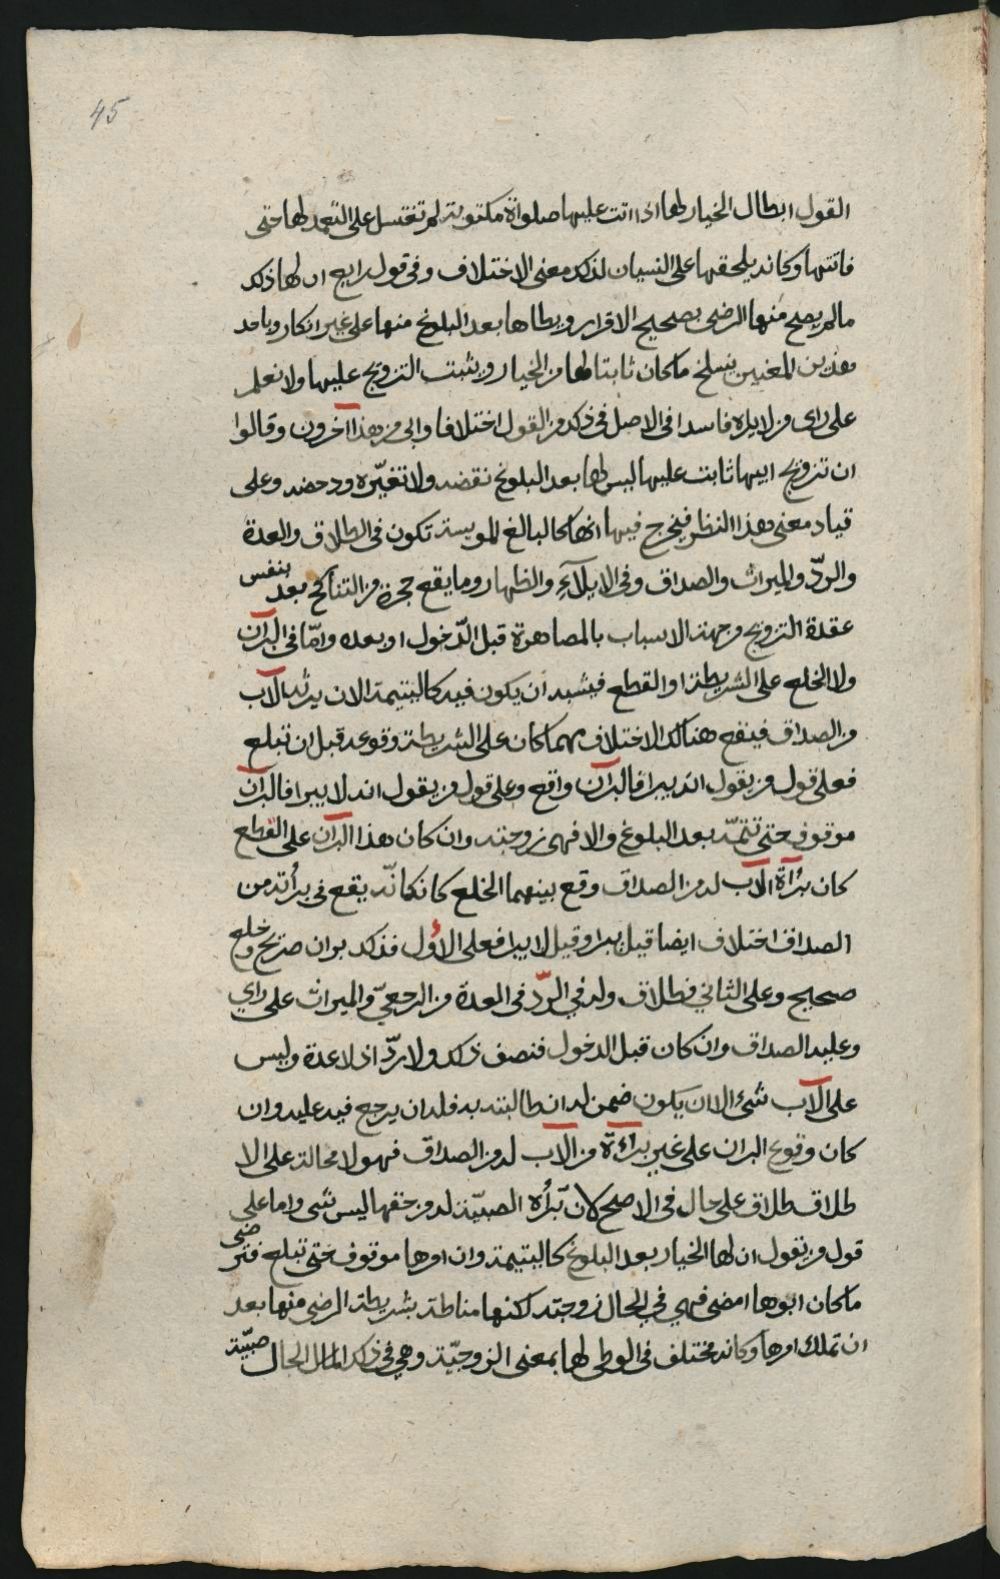 45
القول ابطال الخيار لها اذا اتت عليها صلواة مكتوبة لم تغتسل على التعمد لها حتى
فاتتها وكانه يلحقها على النسيان لذلك معنى الاختلاف وفي قول رابع ان لها ذلك
مالم يصح منها الرضى بصحيح الاقرار ويطاها بعد البلوغ منها على غير انكار وباحد
هذين المعنيين ينسلخ ما كان ثابتا لها من الخيار ويثبت التزويج عليها ولا نعلم
على راى من لا يراه فاسدا في الاصل في ذلك من القول اختلافا وابى من هذا آخرون وقالوا
ان تزويج ابيها ثابت عليها ليس لها بعد البلوغ نقضه ولا تغيّره ودحضه وعلى
قياد معنى هذا النظر فيخرج فيها انها كالبالغ تكون في الطلاق والعدة
والردّ والميراث والصداق وفي الايلآء والظهار وما يقع حجره من التناكح بعد بنفس
عقدة التزويج من جهة الاسباب بالمصاهرة قبل الدّخول او بعده وامّا في البرآن
ولا الخلع على الشريطة او القطع فيشبه ان يكون فيه كاليتيمة الا ان يبرئه الآب
من الصداق فيقع هنالك الاختلاف مهما كان على الشريطة وقوعه قبل ان تبلغ
فعلى قول من يقول انه يبرا فالبرآن واقع وعلى قول من يقول انه لا يبرا فالبرآن
موقوف حتى تتمّه بعد البلوغ والا فهي زوجته وان كان هذا البرآن على القطع
كان برُآة الآب له من الصداق وقع بينهما الخلع كانكانّه يقع في برأته من
الصداق اختلاف ايضا قيل يبرا وقيل لا يبرا فعلى الاؤل فذلك بران صريح وخلع
صحيح وعلى الثاني فطلاق وله في الردّ في العدة من الرجعيّ والميراث على راي
وعليه الصداق وان كان قبل الدخول فنصف ذلك ولا ردّ اذ لا عدة وليس
على الآب شئ الا ان يكون ضمن له ان طالبته به فله ان يرجع فيه عليه وان
كان وقوع البران على غير برآءة من الآب له من الصداق فهو لا محالة على الا
طلاق طلاق على حال في الاصح لانّ تبرُأه الصبيّة له من حقها ليس شى واما على
قول من يقول ان لها الخيار بعد البلوغ كاليتيمة وان امرها موقوف حتى تبلغ فترضى
ما كان ابوها امضى فهي في الحال زوجته لكنها مناطة بشريطة الرضى منها بعد
ان تملك امرها وكانه مختلف في الوطى لها بمعنى الزوجيّة وهي في ذلك الحال صبيّة